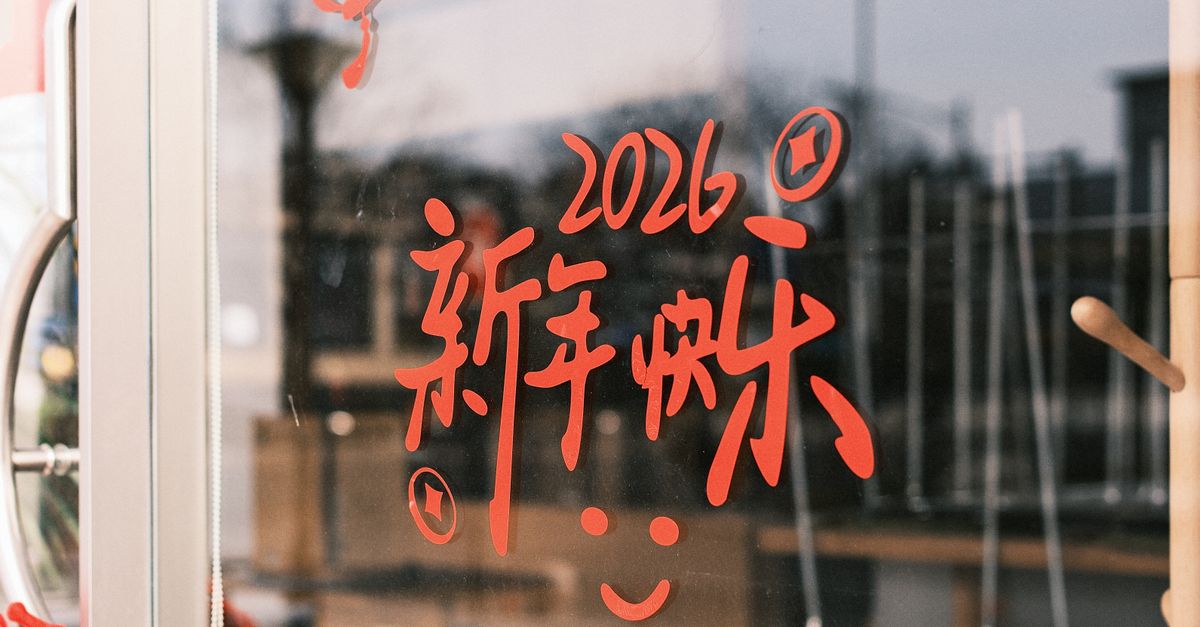 2026
新年快乐